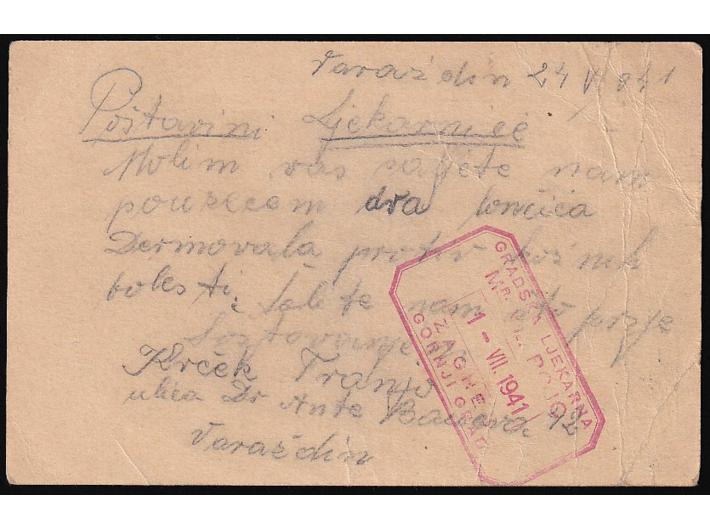 Varaždin 24 V 941
Poštovini Ljekarniče
Molim vas šaljete nam
pouzećem dva lončića
Dermovala protiv kožnih
bolesti. Šalite nam što prije
Krček Franjo
ulica Dr Ante 92
Varaždin
GRADSKA LJEKARNA
Mr.
1 - VII. 1941
ZAGREB
GORNJI GRAD